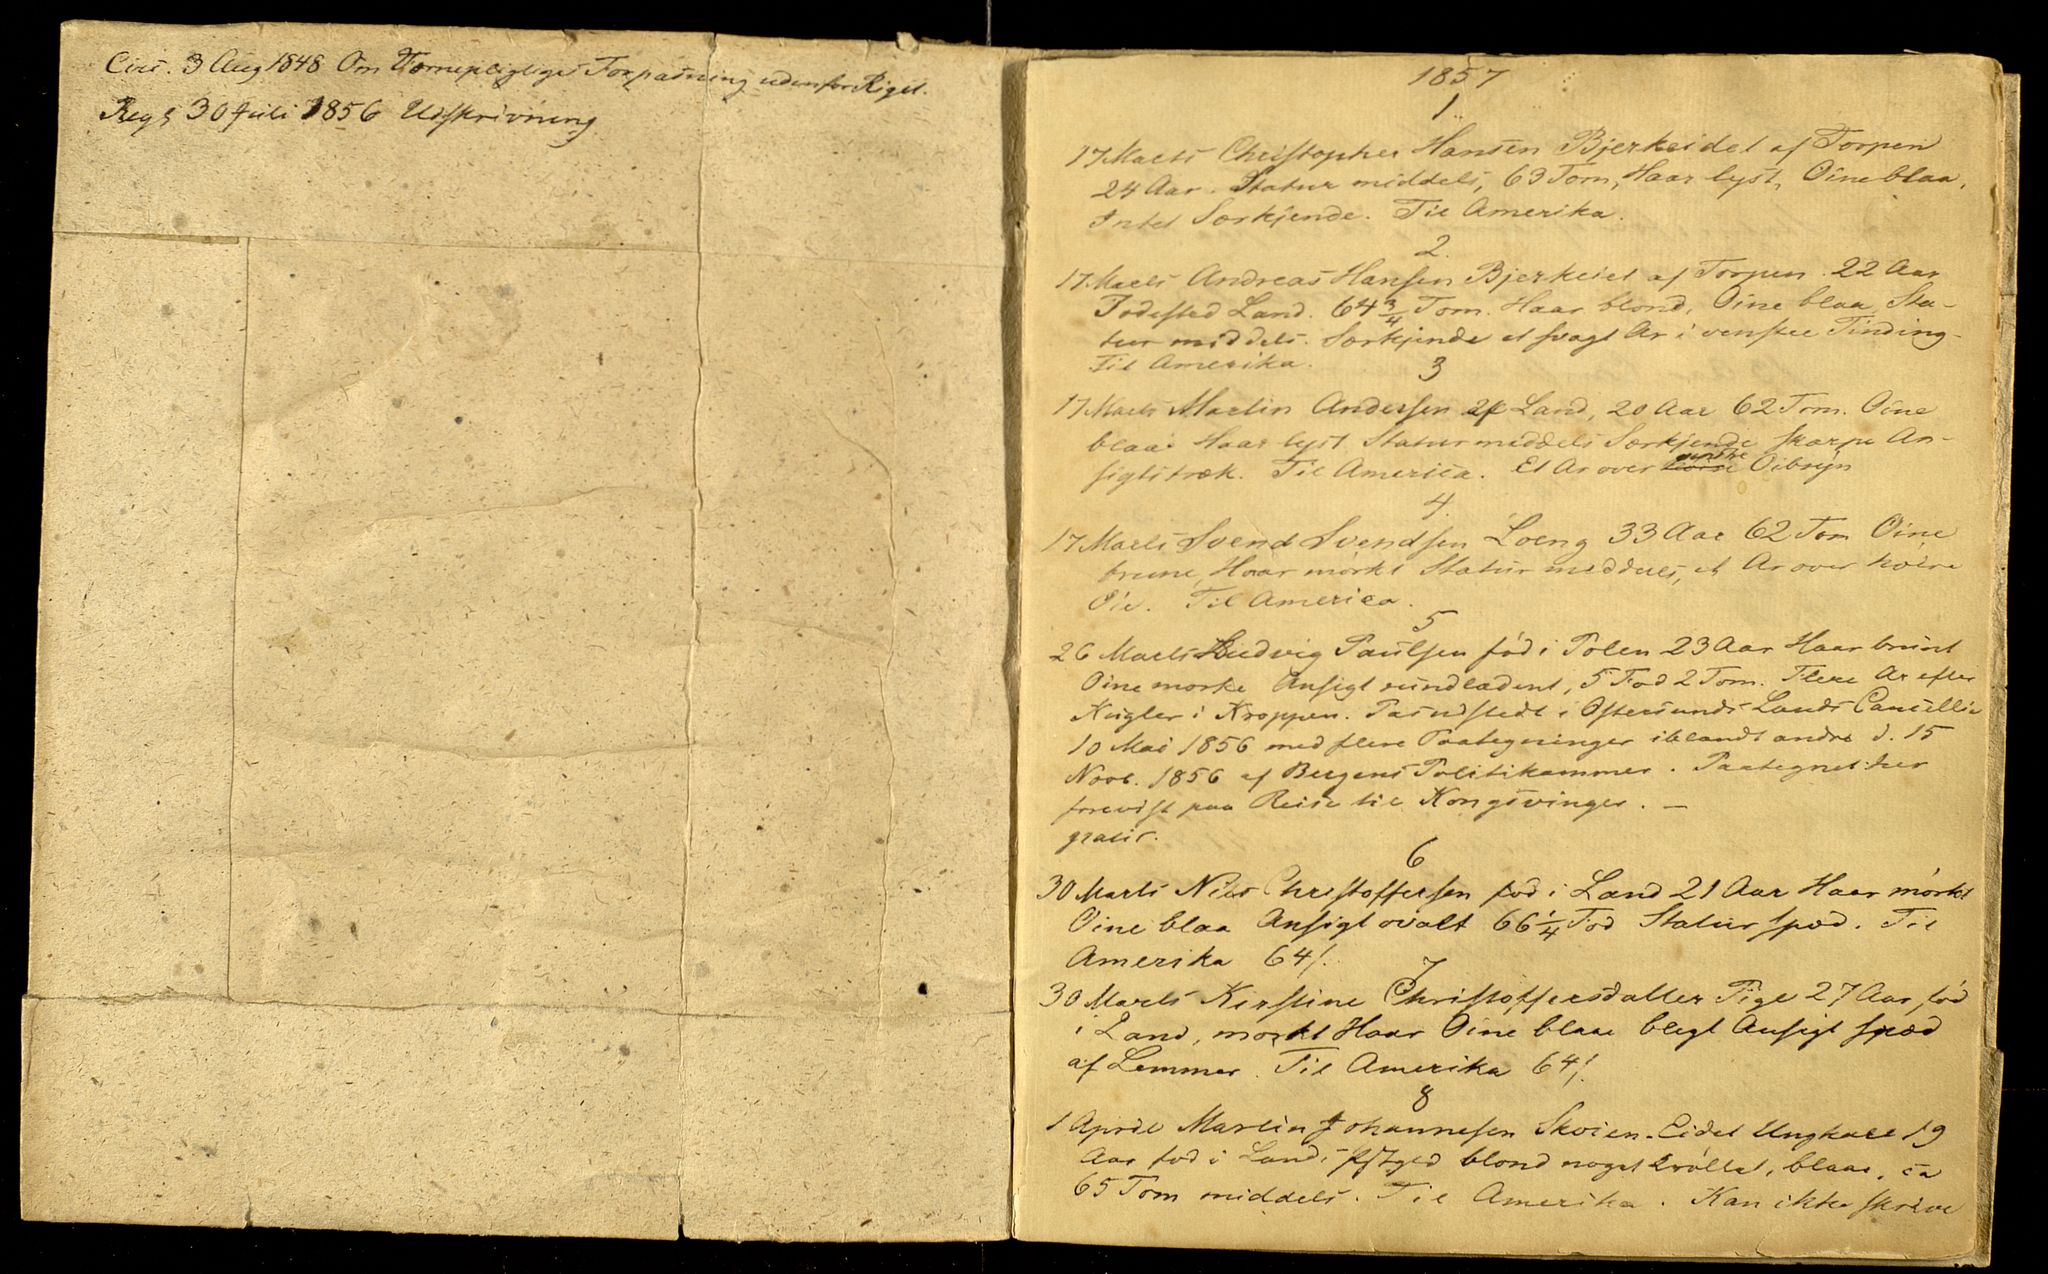 Circ. 3 Aug 1848 Om Værnepligtiges Forpasning udenfor Riget.
Regs 30 Juli 1856 Udskrivning
1857
1
17 Marts Christopher Hansen Bjerkeidet af Torpen
24 Aar. Statur middels, 63 Tom, Haar lyst, Öine blaa,
Intet Særkjende. Til Amerika.
2.
17 Marts Andreas Hansen Bjerkeiet af Torpen. 22 Aar
Fødested Land. 64 3/4 Tom. Haar blond, Öine blaa, Sta-
tur middels. Særkjende et svagt Ar i venstre Tinding-
Til Amerika.
3
17 Marts Martin Andersen af Land, 20 Aar 62 Tom. Öine
blaa. Haar lyst Statur middels Særkjende skarpe An-
sigtstræk. Til America. Et Ar over venstre Öibryn
4.
17 Marts Svend Svendsen Loeng 33 Aar 62 Tom Öine
brune, Haar mörkt Statur middels, et Ar over höire
Öie. Til America.
5
26 Marts Ludvig Paulsen född i Polen 23 Aar Haar brunt
Öine mørke Ansigt rundladent, 5 Fod 2 Tom. Flere Ar efter
Kugler i Kroppen. Pas udstedt i Östersunds Lands Cancellie
10 Mai 1856 med flere Paategninger iblandt andre d. 15
Novb. 1856 af Bergens Politikammer. Paategnet her
forevist paa Reise til Kongsvinger. —
gratis.
6
30 Marts Nils Christoffersen fød i Land 21 Aar Haar mörkt
Öine blaa Ansigt ovalt 66 1/4 Fod Statur spæd. Til
Amerika 64/.
7
30 Marts Kirstine Christoffersdatter Pige 27 Aar, född
i Land, mørkt Haar Öine blaae blegt Ansigt spæd
af Lemmer. Til Amerika 64/.
8
1 April Martin Johannesen Skoien-Eidet Ungkarl 19
Aar fød i Land, blond noget blaae, ca
65 Tom middels. Til Amerika. Kan ikke skrive